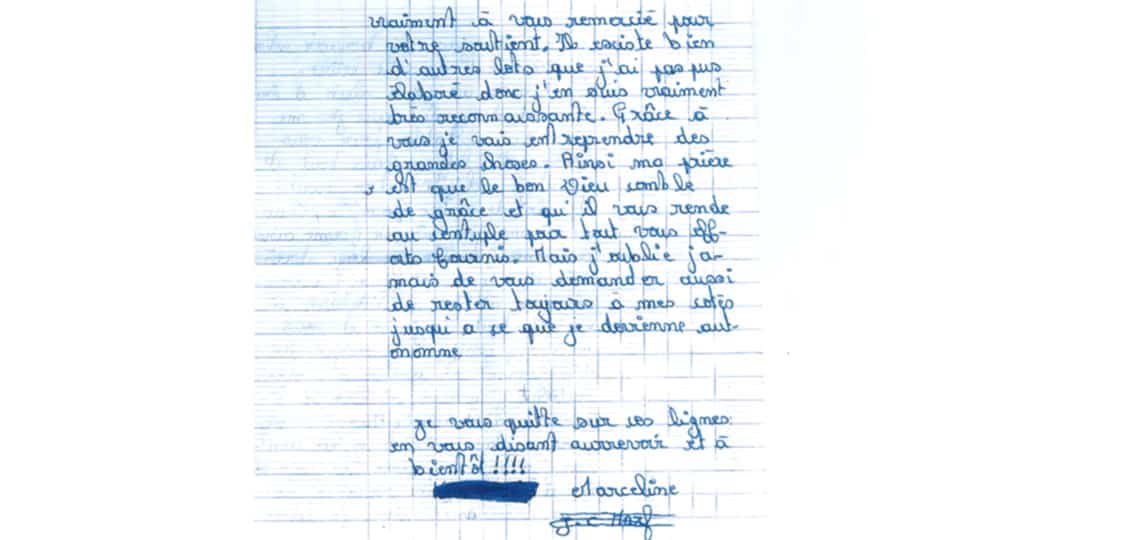 vraiment à vous remercié pour
votre soutient. Il existe bien
d'autres lots que j'ai pas pus
élaboré donc j'en suis vraiment
très reconnaissante. Grâce à
vous je vais entreprendre des
grandes choses. Ainsi ma prière
est que le bon Dieu comble
de grâce et qu'il vous rende
au centuple par tout vous eff-
orts fournis. Mais j'oublie ja-
mais de vous demander aussi
de rester toujours à mes cotés
jusqu'a ce que je devienne aut-
onomne
je vous quitte sur ces lignes
en vous disant aurrevoir et à
bientôt !!!!
Marceline